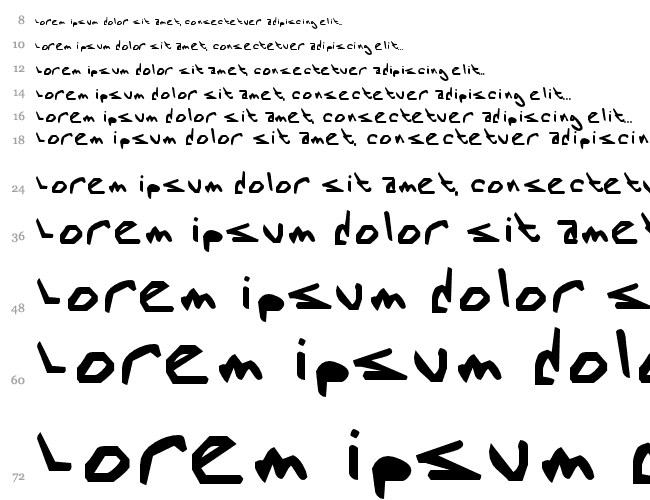 8 Lorem ipsum dolor sit amet, consectetuer adipiscing elit..
10 Lorem ipsum dolor sit amet, consectetuer adipiscing elit..
12 Lorem ipsum dolor sit amet, consectetuer adipiscing elit..
14 Lorem ipsum dolor sit amet, consectetuer adipiscing elit..
16 Lorem ipsum dolor sit amet, consectetuer adipiscing elit..
18 Lorem ipsum dolor sit amet, consectetuer adipiscin
24 Lorem ipsum dolor sit amet, consectetu
36 Lorem ipsum dolor sit amet
48 Lorem ipsum dolor s
60 Lorem ipsum dol
72 Lorem ipsum